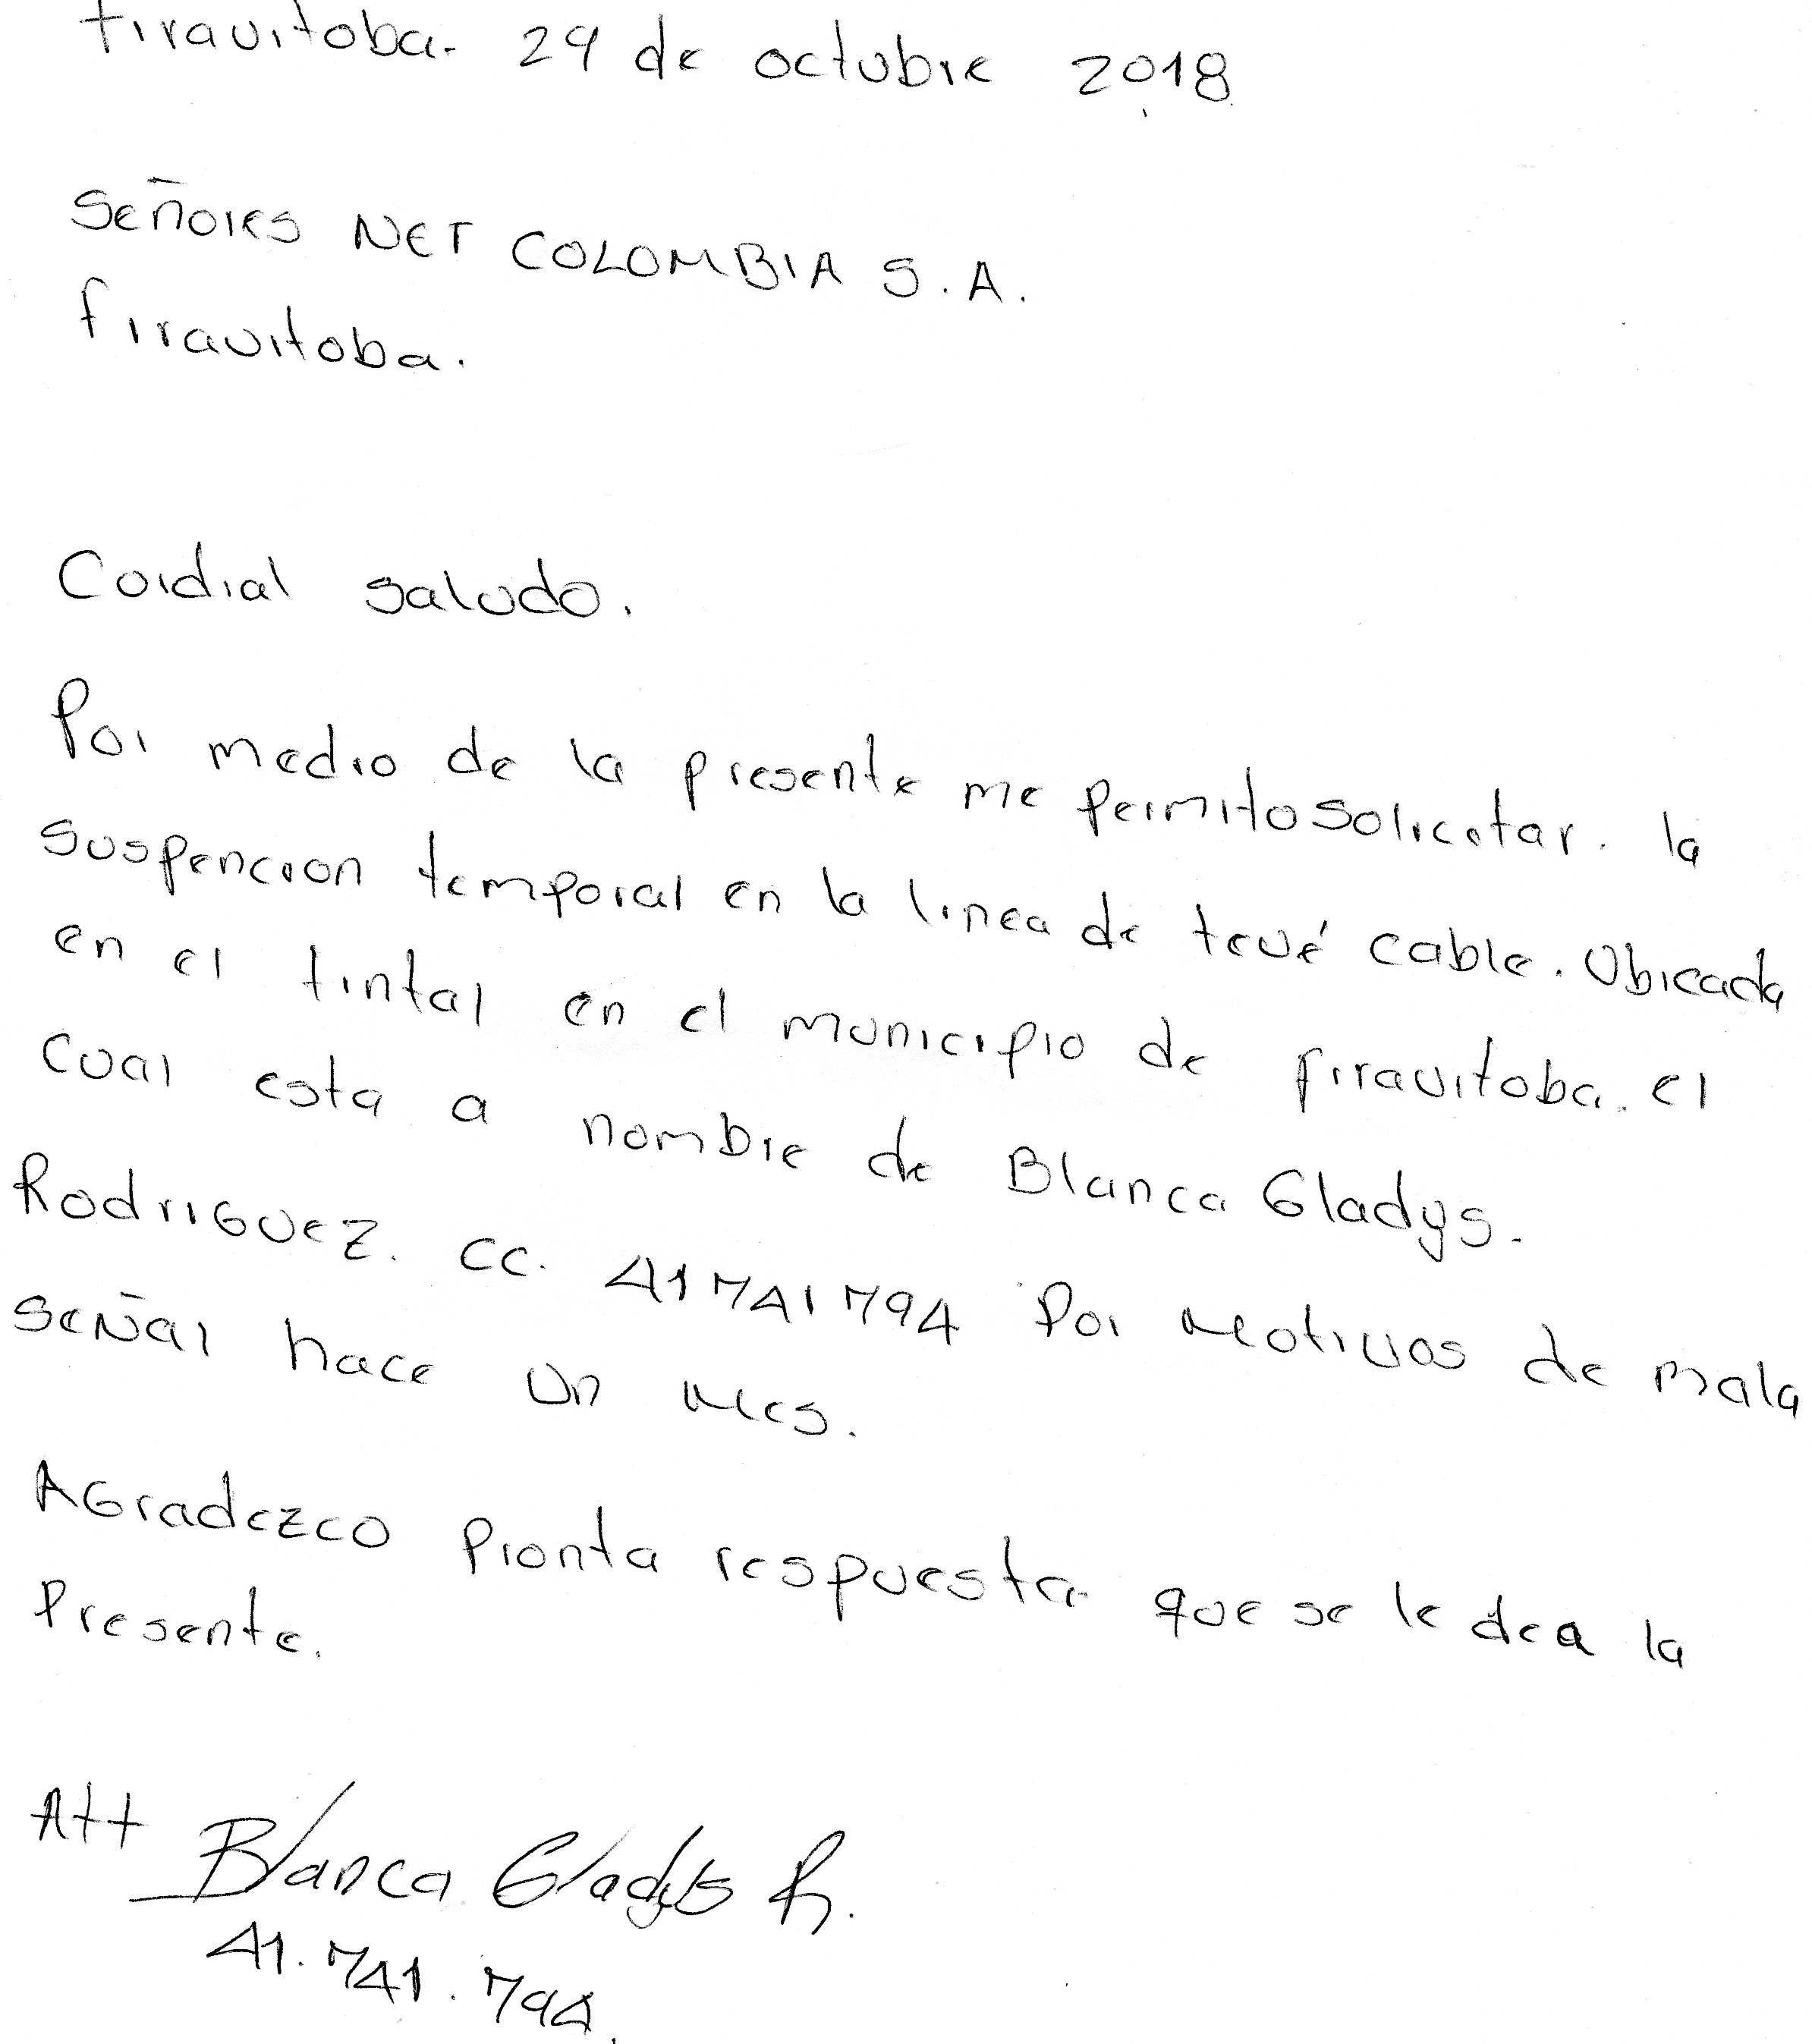 firavitoba. 29 de octubre 2018
Señores NET COLOMBIA S.A.
firavitoba.
Cordial saludo.
Por medio de la presente me permito solicitar. la
suspencion temporal en la linea de tevé cable. Ubicada
en el tintal en el municipio de firavitoba. el
cual esta a nombre de Blanca Gladys.
Rodriguez. cc. 41741794 Por Motivos de mala
señal hace un Mes.
AGradezco Pronta respuesta que se le dea la
Presente.
Att Blanca Gladys R.
41.741.794.